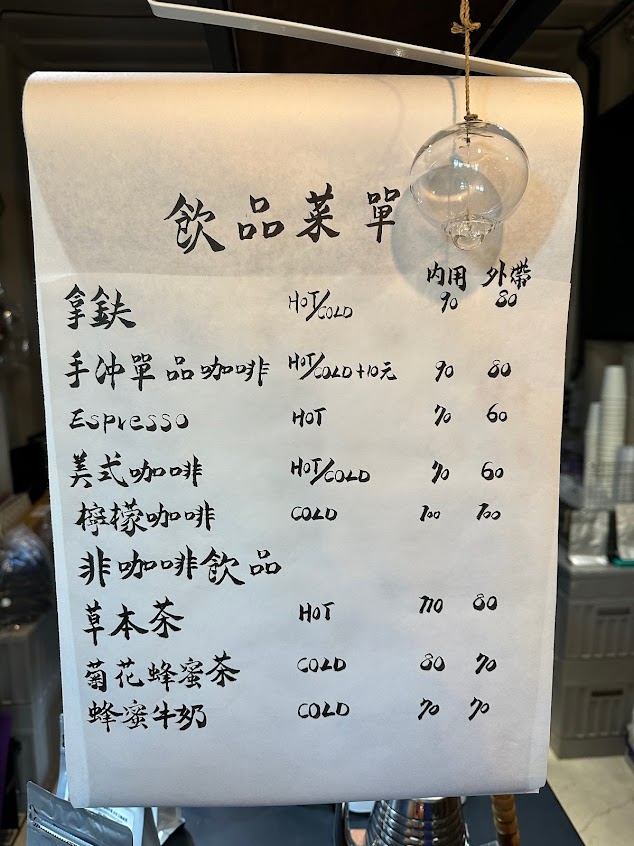 飲品菜單
內用 外帶
拿鉄 HOT/COLD 90 80
手沖單品咖啡 HOT/COLD+10元 90 80
Espresso HOT 70 60
美式咖啡 HOT/COLD 70 60
檸檬咖啡 COLD 100 100
非咖啡飲品
草本茶 HOT 110 80
菊花蜂蜜茶 COLD 80 70
蜂蜜牛奶 COLD 70 70